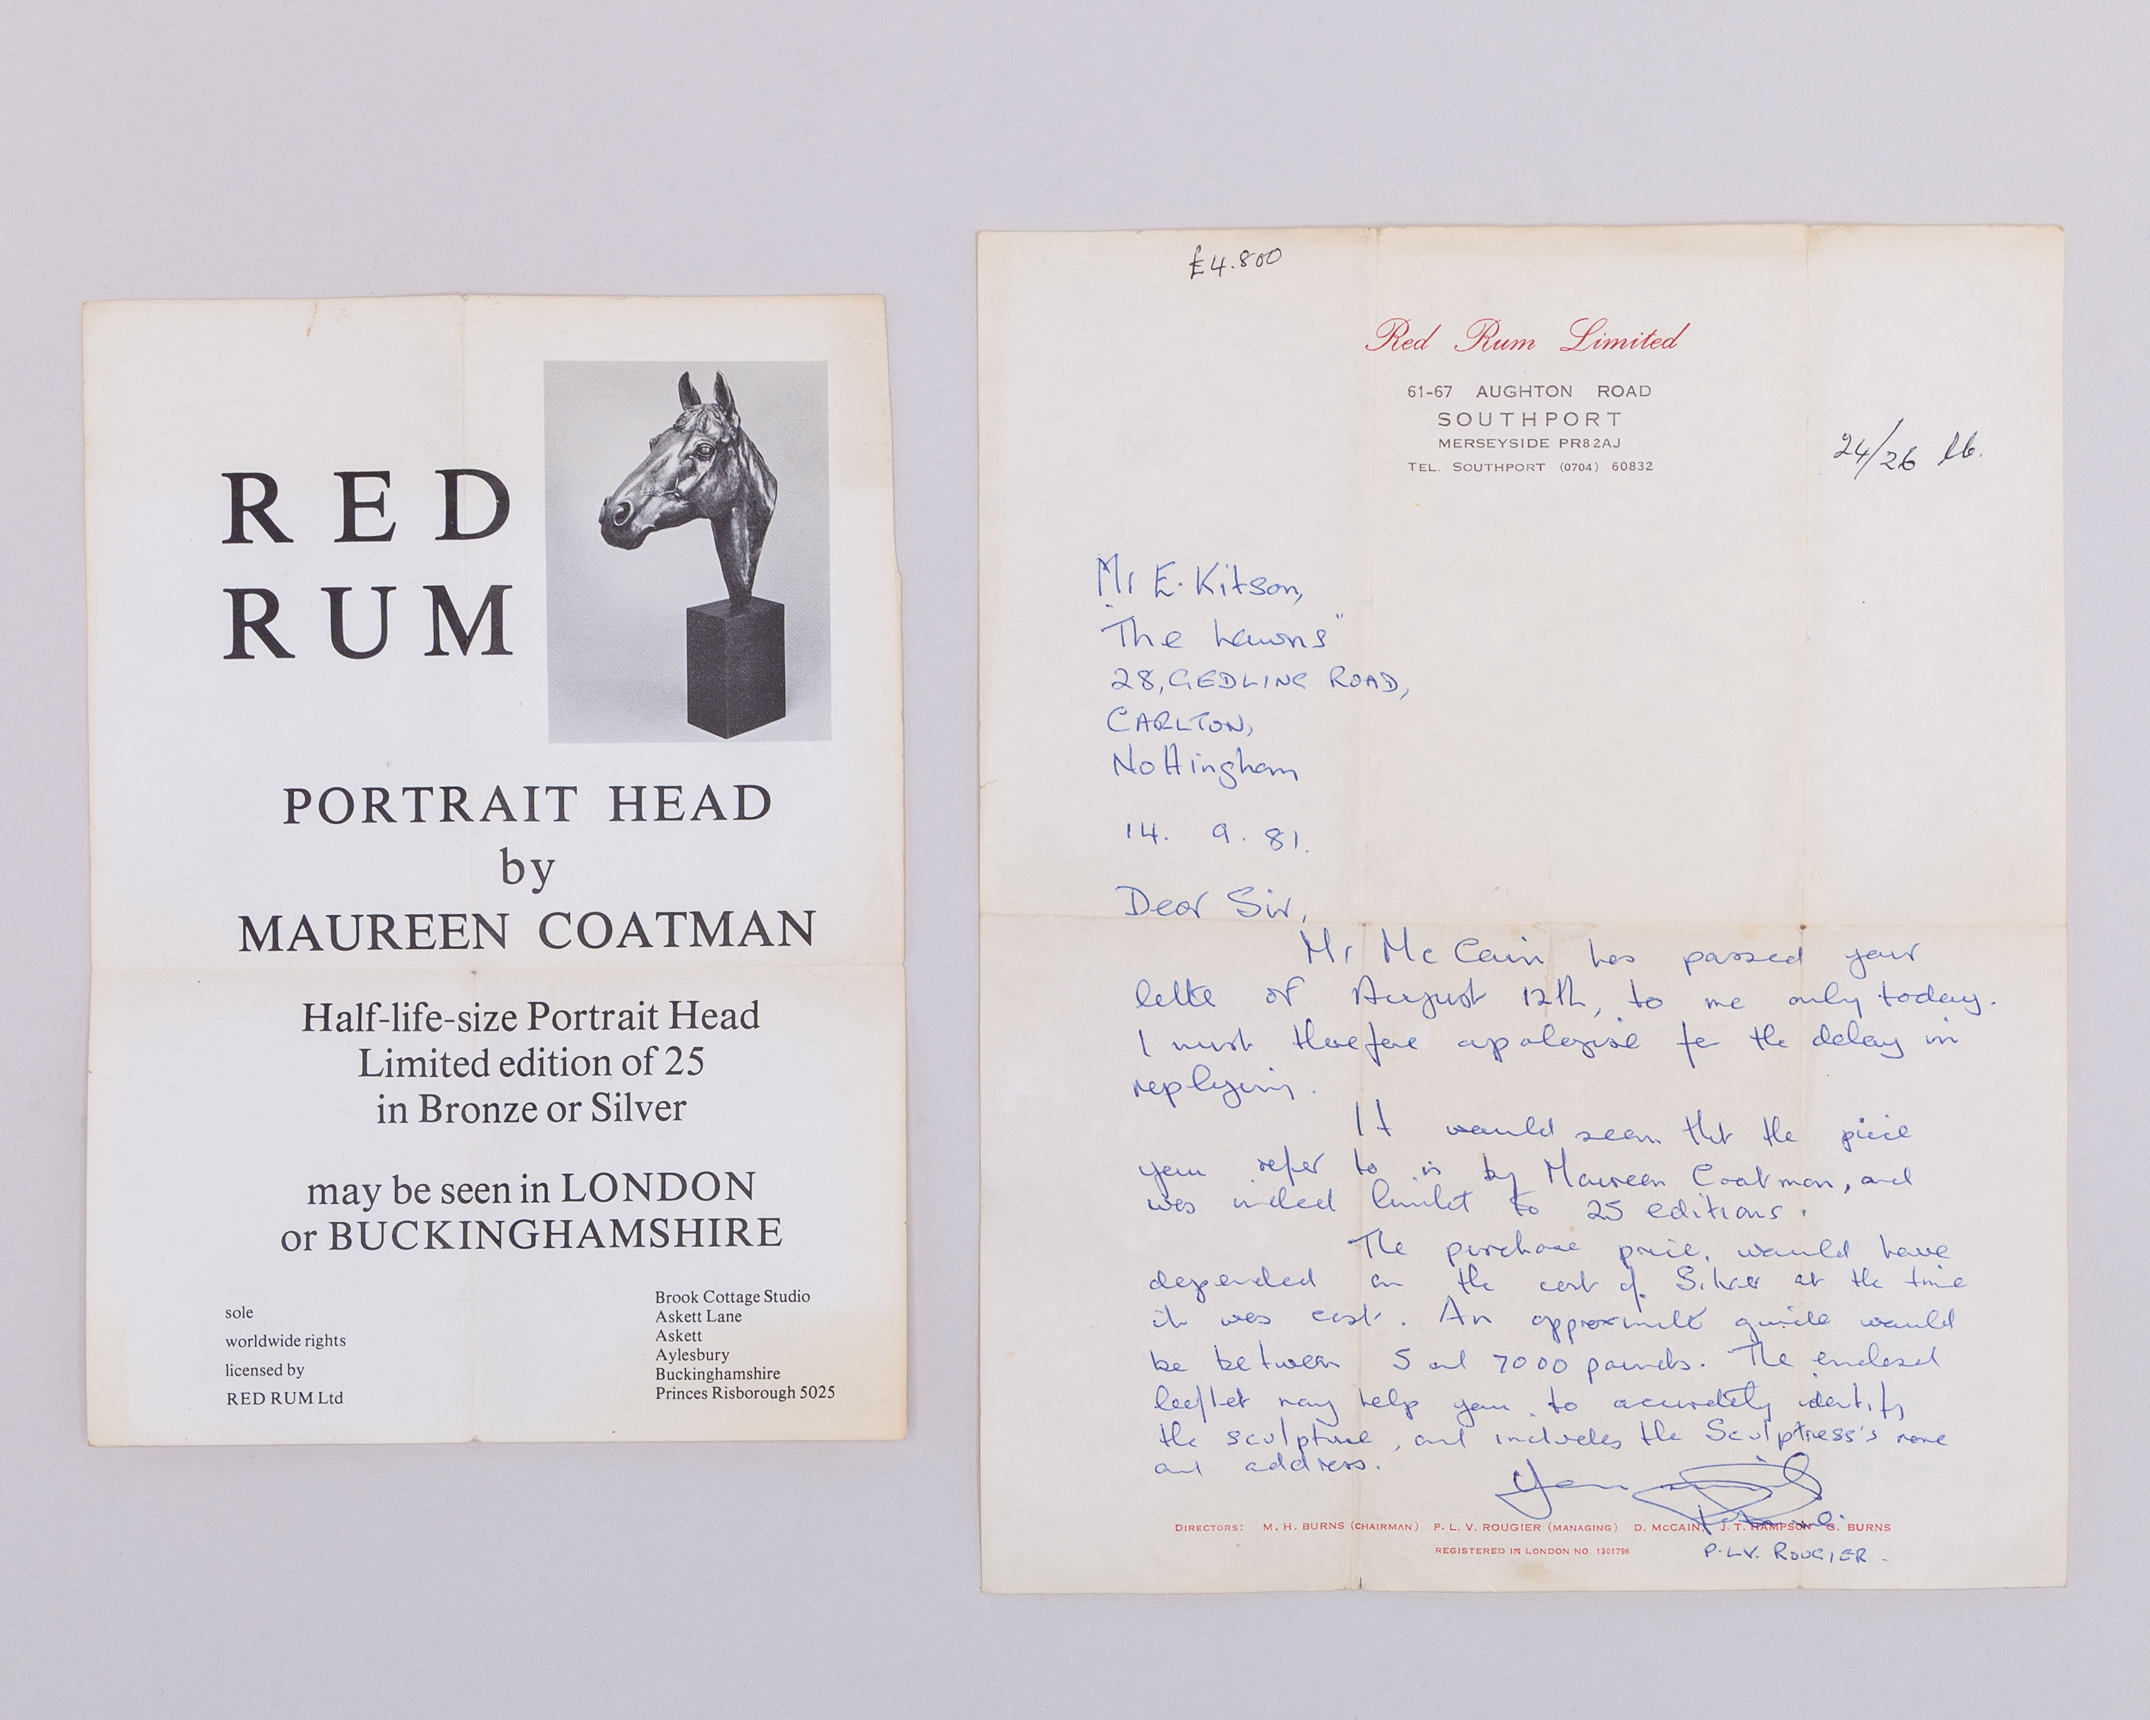 RED
RUM
PORTRAIT HEAD
by
MAUREEN COATMAN
Half-life-size Portrait Head
Limited edition of 25
in Bronze or Silver
may be seen in LONDON
or BUCKINGHAMSHIRE
sole
worldwide rights
licensed by
RED RUM Ltd
Brook Cottage Studio
Askett Lane
Askett
Aylesbury
Buckinghamshire
Princes Risborough 5025
£4.800
Red Rum Limited
61-67 AUGHTON ROAD
SOUTHPORT
MERSEYSIDE PR8 2AJ
TEL. SOUTHPORT (0704) 60832
24/26 lb.
Mr E. Kitson,
"The Lawns"
28, GEDLING ROAD,
CARLTON,
Nottingham
14. 9. 81.
Dear Sir,
Mr McCain has passed your
letter of August 12th, to me only today.
I must therefore apologise for the delay in
replying.
It would seem that the piece
you refer to is by Maureen Coatman, and
was indeed limited to 25 editions.
The purchase price, would have
depended on the cost of Silver at the time
it was cast. An approximate guide would
be between 5 and 7000 pounds. The enclosed
leaflet may help you to accurately identify
the sculpture, and includes the Sculptress's name
and address.
DIRECTORS: M. H. BURNS (CHAIRMAN) P. L. V. ROUGIER (MANAGING) D. McCAIN, J. T. HAMPSON G. BURNS
REGISTERED IN LONDON NO. 1301796
P.L.V. ROUGIER.